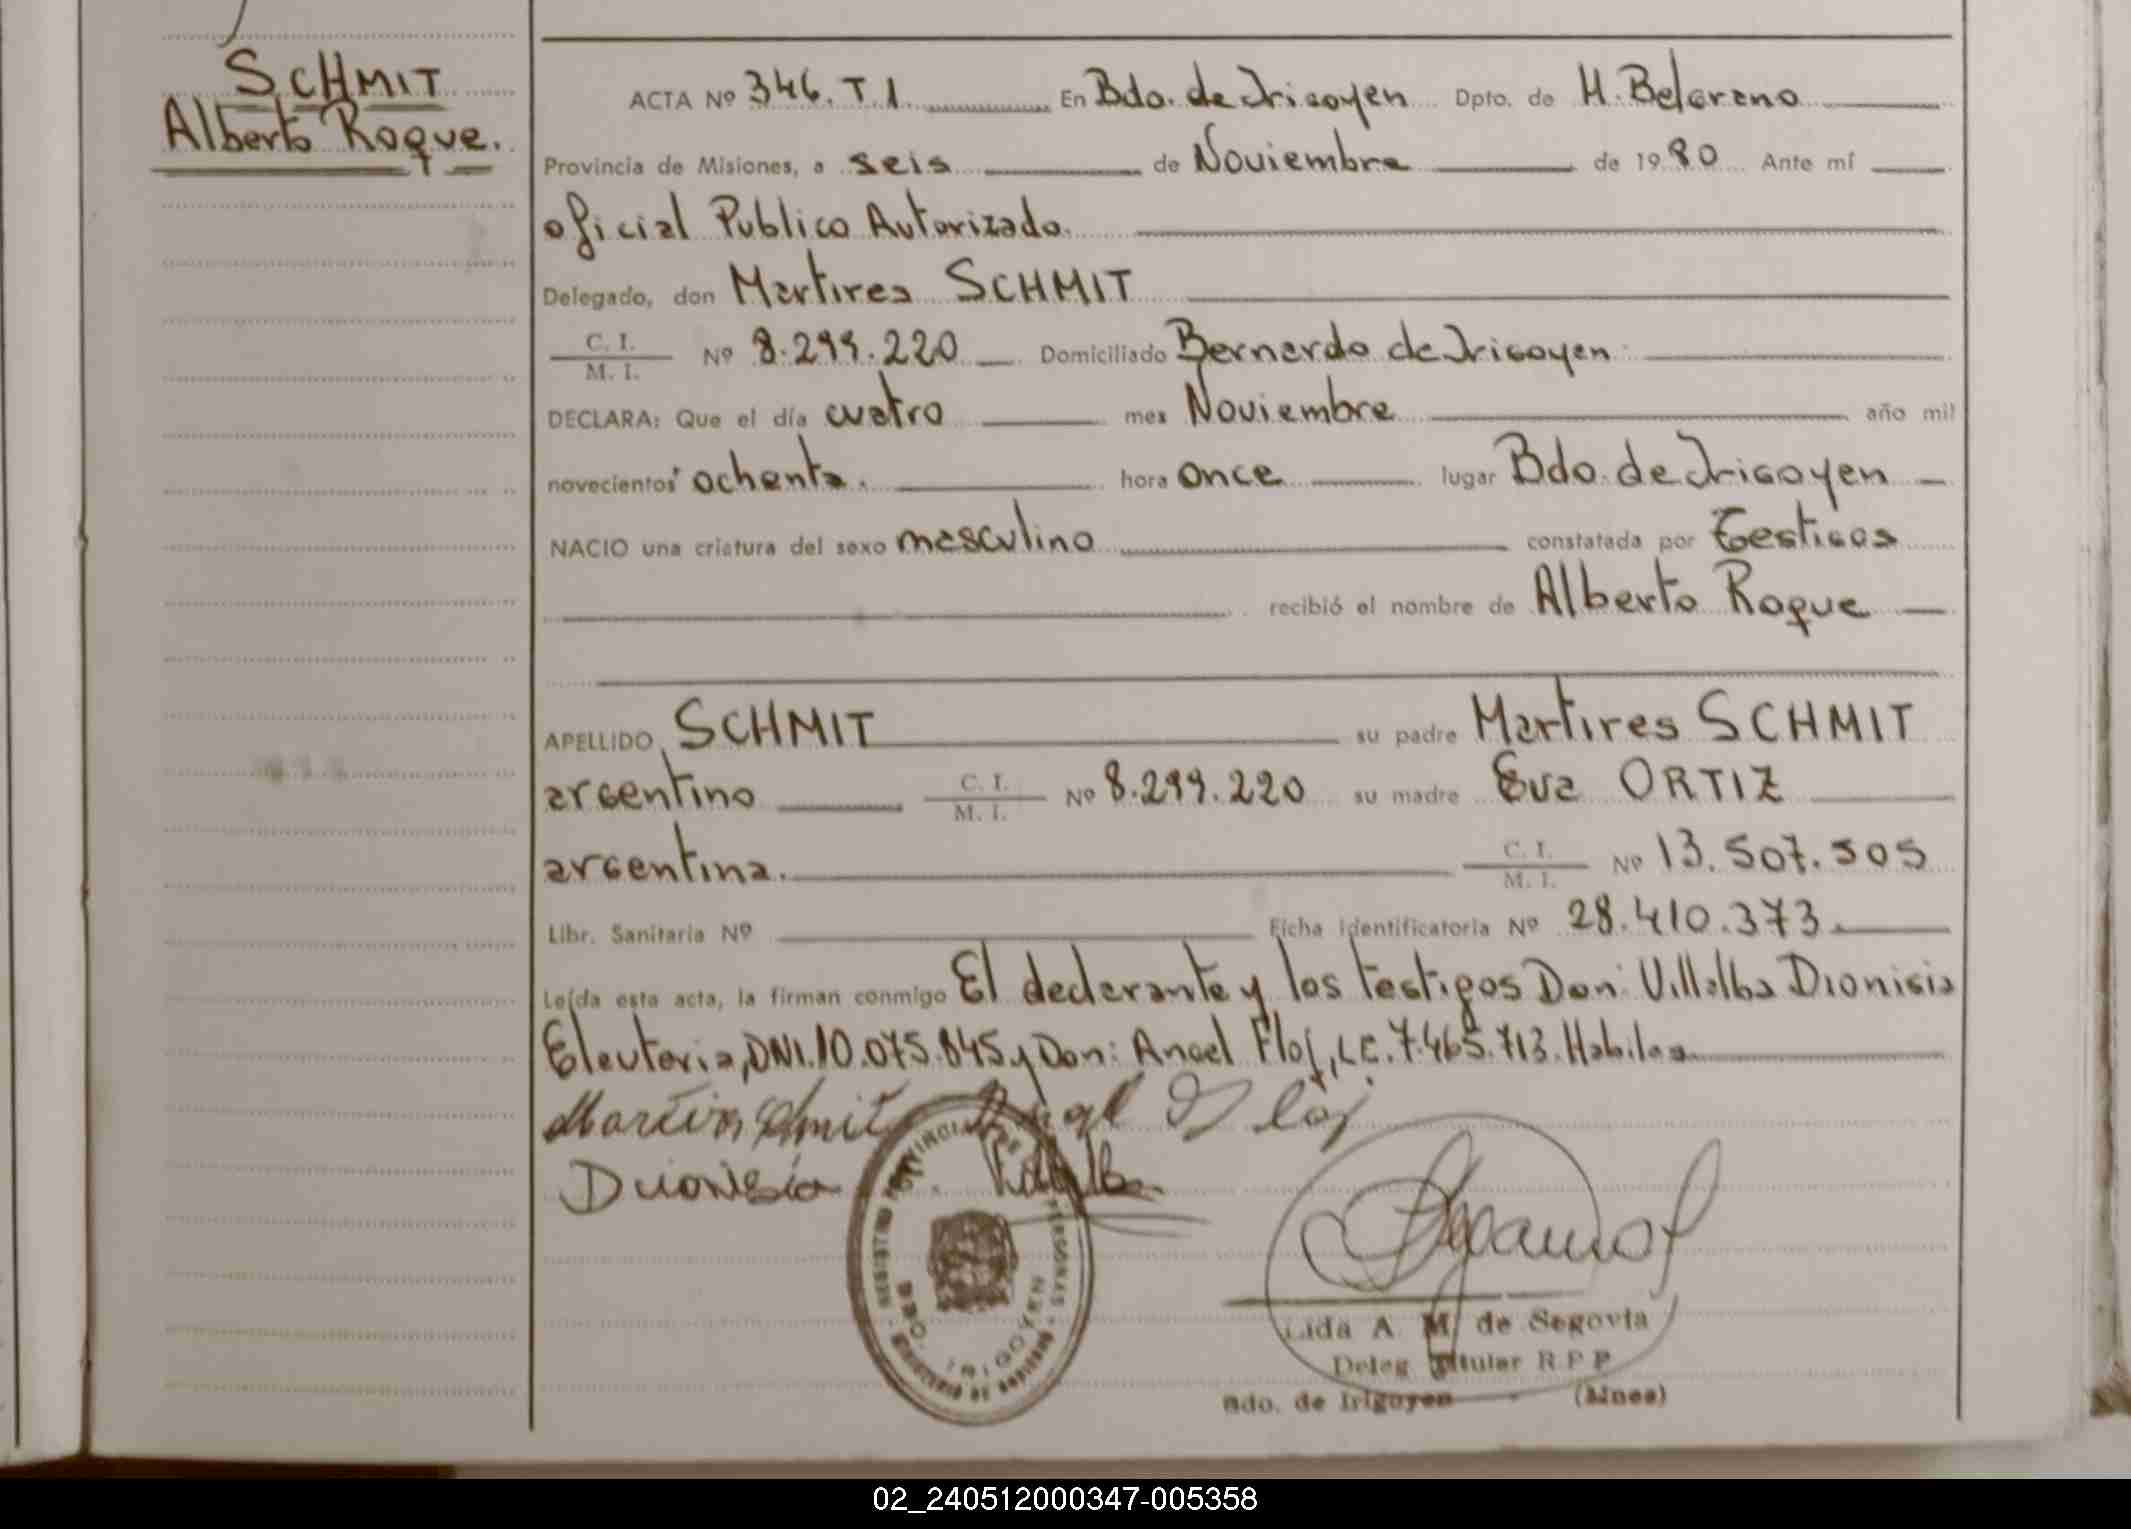 SCHMIT
Alberto Roque.
ACTA Nº 346. T I. En Bdo. de Irigoyen Dpto. de M. Belgrano
Provincia de Misiones, a seis de Noviembre de 1980 Ante mí
oficial Publico Autorizado.
Delegado, don Martires SCHMIT
C. I.
M. I.
Nº 8.299.220 Domiciliado Bernardo de Irigoyen
DECLARA: Que el día cuatro mes Noviembre año mil
novecientos ochenta. hora once lugar Bdo. de Irigoyen
NACIO una criatura del sexo masculino constatada por Testigos
recibió el nombre de Alberto Roque
APELLIDO SCHMIT su padre Martires SCHMIT
argentino C. I. M. I. Nº 8.299.220 su madre Eva ORTIZ
argentina. C. I. M. I. Nº 13.507.505
Libr. Sanitaria Nº Ficha Identificatoria Nº 28.410.373
Leída esta acta, la firman conmigo El declarante y los testigos Don: Villalba Dionisia
Eleuteria, DNI. 10.075.845 y Don: Angel Flof, LC. 7.465.713. Habiles
Dionisia
PROVINCIA DE
REGISTRO
PERSONAS
BDO. IRIGOYEN
Lida A. M. de Segovia
Deleg Titular R.P.P
Bdo. de Irigoyen (Mnes)
02_240512000347-005358